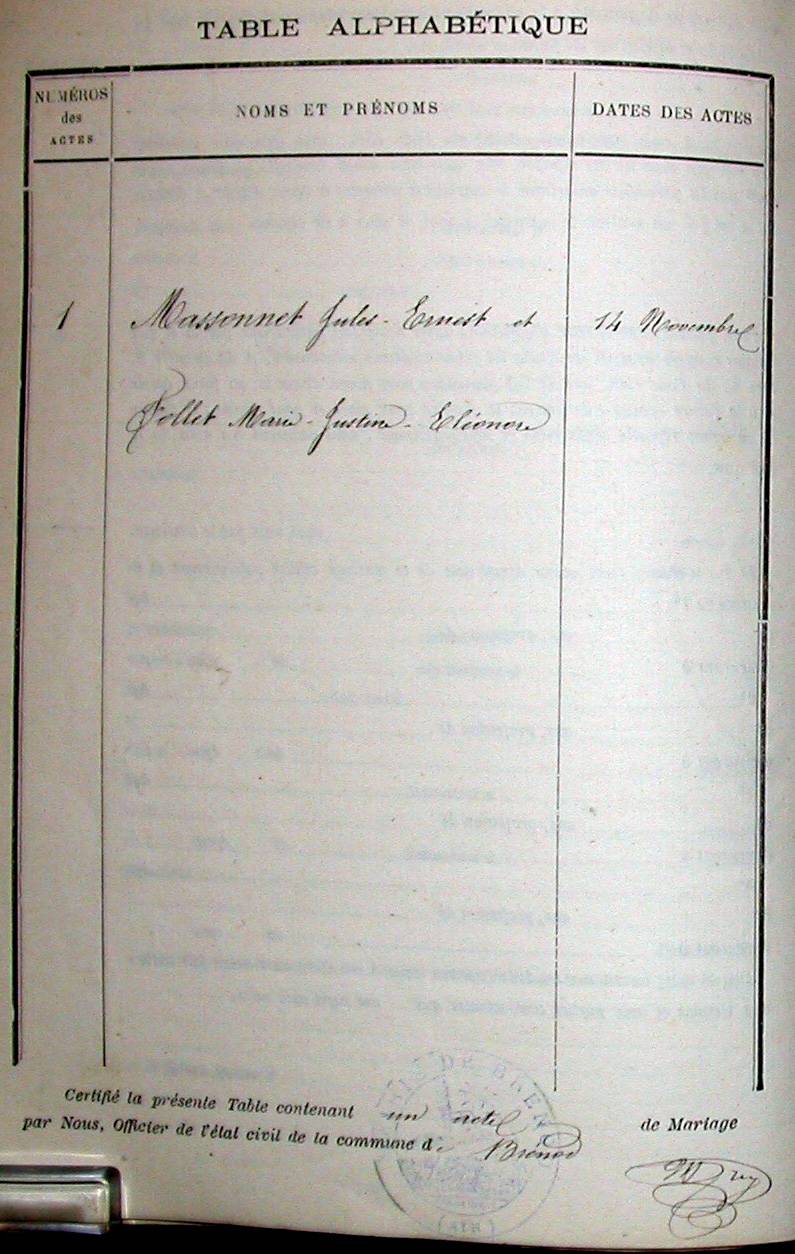 TABLE ALPHABÉTIQUE
NUMÉROS des ACTES
NOMS ET PRÉNOMS
DATES DES ACTES
1 Massonnet Jules-Ernest et 14 Novembre
Vollet Marie-Justine-Eléonore
Certifié la présente Table contenant un acte de Mariage
par Nous, Officier de l'état civil de la commune de Brénod
DE BREN
(AIN)